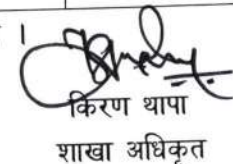 ।
किरण थापा
शाखा अधिकृत